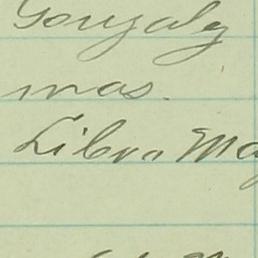 Gonzalz
mas.
Libra Ma